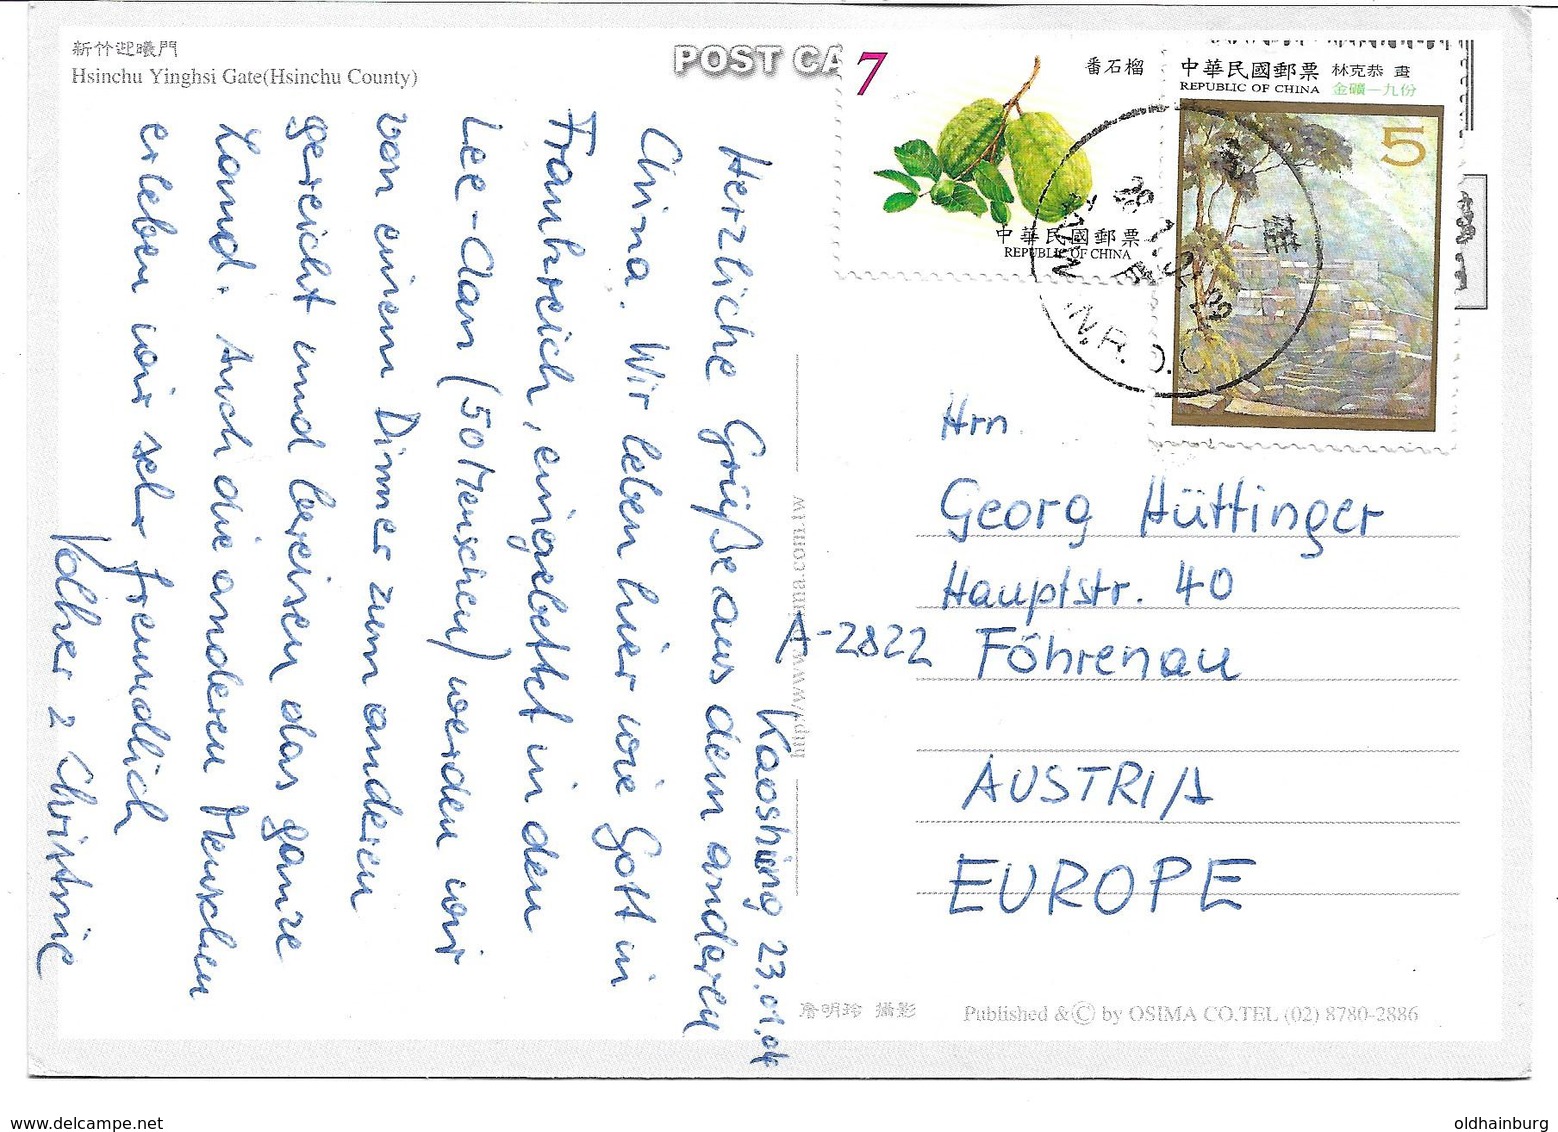 新竹迎曦門
Hsinchu Yinghsi Gate(Hsinchu County)
POST CA
7
番石榴
中華民國郵票
REPUBLIC OF CHINA
中華民國郵票 林克恭 畫
REPUBLIC OF CHINA 金礦一九份
5
雄
TAIWAN, R.O.C
Kaoshiung 23.01.04
Herzliche Grüße aus dem anderen
China. Wir leben hier wie Gott in
Frankreich, eingebettet in den
Lee-Clan (50 Menschen) werden wir
von einem Dinner zum anderen
gereicht und bereisen das ganze
Land. Auch die anderen Menschen
erleben wir sehr freundlich
Volker & Christine
Hrn.
Georg Hüttinger
Hauptstr. 40
A-2822 Föhrenau
AUSTRIA
EUROPE
詹明玲 攝影
Published &© by OSIMA CO.TEL (02) 8780-2886
oldhainburg
www.delcampe.net